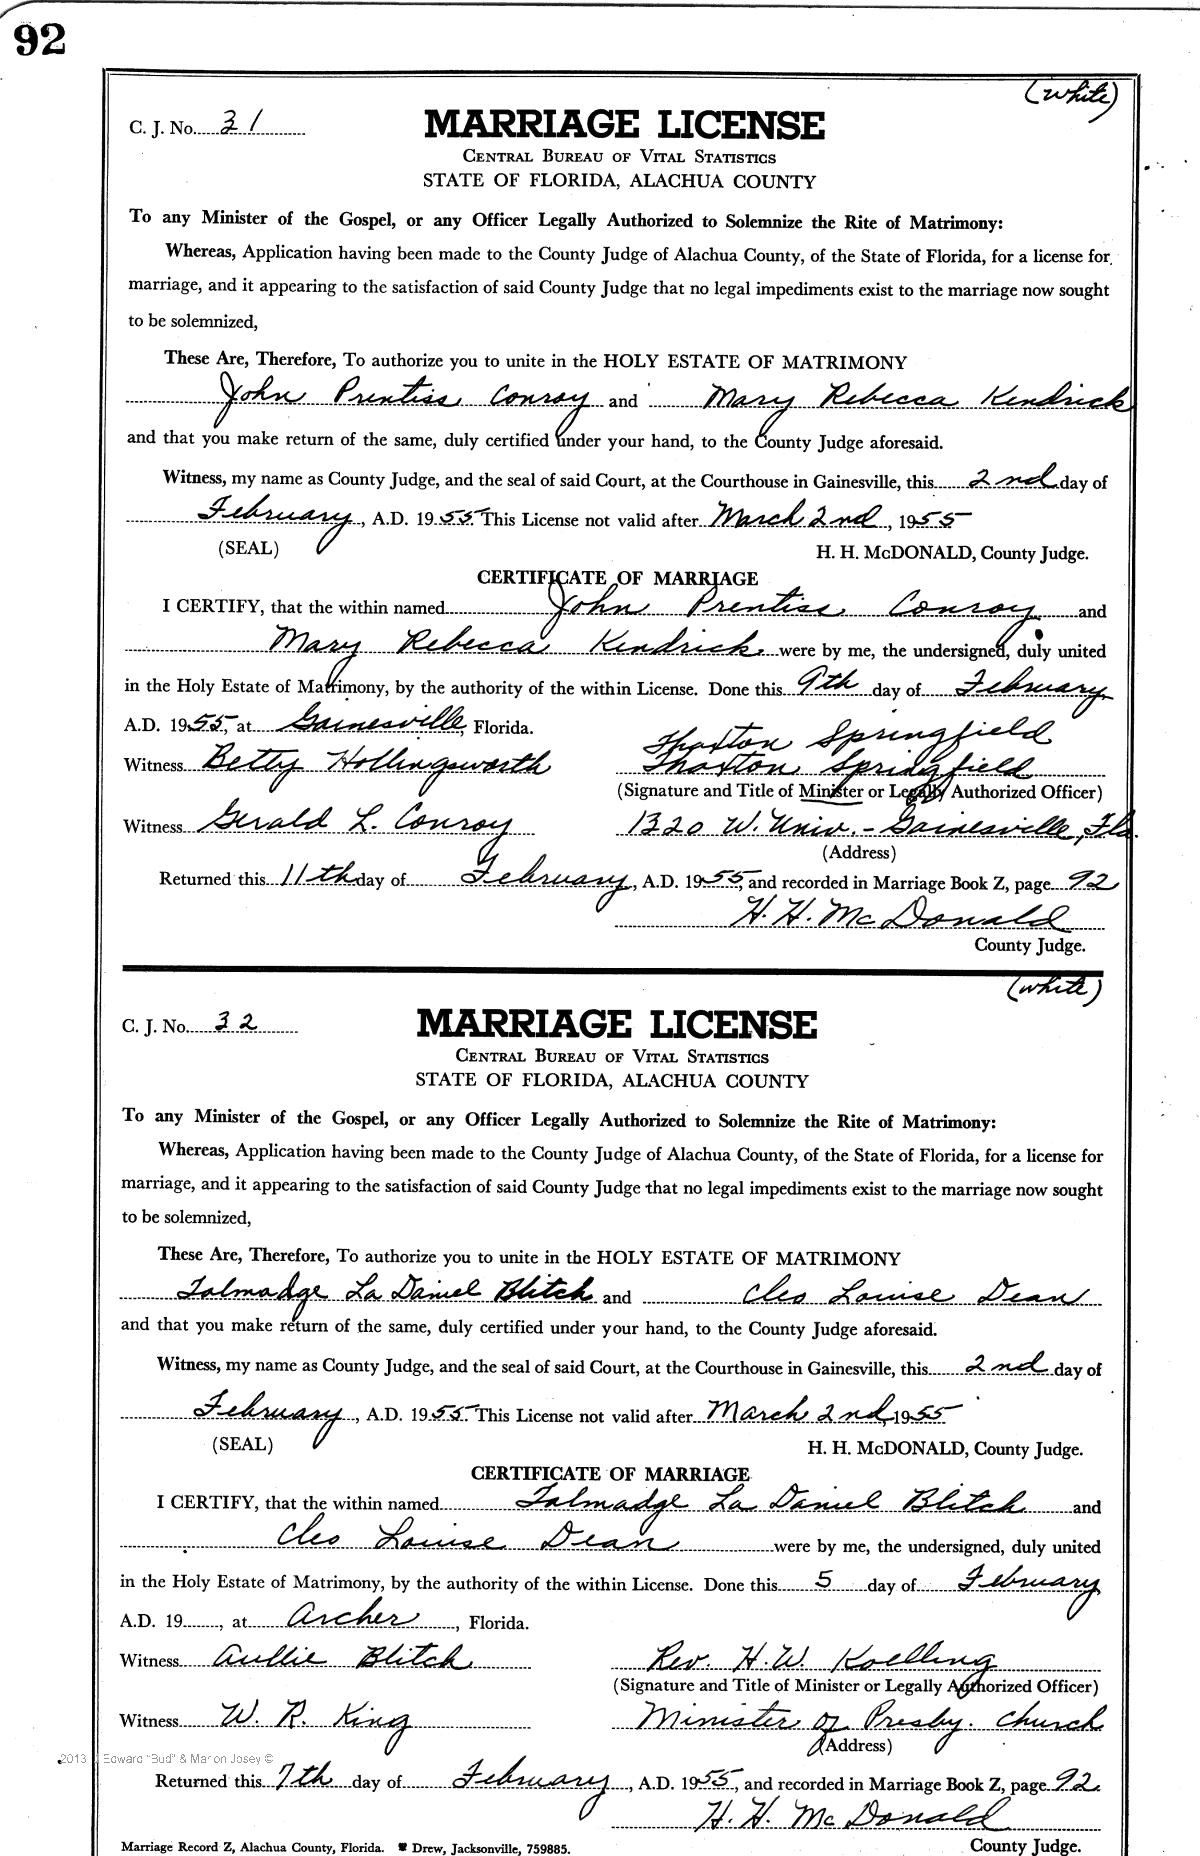 92
(white)
C. J. No. 31
MARRIAGE LICENSE
CENTRAL BUREAU OF VITAL STATISTICS
STATE OF FLORIDA, ALACHUA COUNTY
To any Minister of the Gospel, or any Officer Legally Authorized to Solemnize the Rite of Matrimony:
Whereas, Application having been made to the County Judge of Alachua County, of the State of Florida, for a license for
marriage, and it appearing to the satisfaction of said County Judge that no legal impediments exist to the marriage now sought
to be solemnized,
These Are, Therefore, To authorize you to unite in the HOLY ESTATE OF MATRIMONY
John Prentiss Conroy and Mary Rebecca Kendrick
and that you make return of the same, duly certified under your hand, to the County Judge aforesaid.
Witness, my name as County Judge, and the seal of said Court, at the Courthouse in Gainesville, this 2nd day of
February, A.D. 1955. This License not valid after March 2nd, 1955
(SEAL) H. H. McDONALD, County Judge.
CERTIFICATE OF MARRIAGE
I CERTIFY, that the within named John Prentiss Conroy and
Mary Rebecca Kendrick were by me, the undersigned, duly united
in the Holy Estate of Matrimony, by the authority of the within License. Done this 9th day of February
A.D. 1955, at Gainesville, Florida.
Thaxton Springfield
Witness Betty Hollingsworth Thaxton Springfield
(Signature and Title of Minister or Legally Authorized Officer)
Witness Gerald L. Conroy 1320 W. Univ. - Gainesville, Fla.
(Address)
Returned this 11th day of February, A.D. 1955, and recorded in Marriage Book Z, page 92
H. H. McDonald
County Judge.
(white)
C. J. No. 32
MARRIAGE LICENSE
CENTRAL BUREAU OF VITAL STATISTICS
STATE OF FLORIDA, ALACHUA COUNTY
To any Minister of the Gospel, or any Officer Legally Authorized to Solemnize the Rite of Matrimony:
Whereas, Application having been made to the County Judge of Alachua County, of the State of Florida, for a license for
marriage, and it appearing to the satisfaction of said County Judge that no legal impediments exist to the marriage now sought
to be solemnized,
These Are, Therefore, To authorize you to unite in the HOLY ESTATE OF MATRIMONY
Talmadge La Daniel Blitch and Cleo Louise Dean
and that you make return of the same, duly certified under your hand, to the County Judge aforesaid.
Witness, my name as County Judge, and the seal of said Court, at the Courthouse in Gainesville, this 2nd day of
February, A.D. 1955. This License not valid after March 2nd, 1955
(SEAL) H. H. McDONALD, County Judge.
CERTIFICATE OF MARRIAGE
I CERTIFY, that the within named Talmadge La Daniel Blitch and
Cleo Louise Dean were by me, the undersigned, duly united
in the Holy Estate of Matrimony, by the authority of the within License. Done this 5 day of February
A.D. 19, at Archer, Florida.
Witness Aullie Blitch Rev. H. W. Koelling
(Signature and Title of Minister or Legally Authorized Officer)
Witness W. R. King Minister of Presby. Church
(Address)
2013 Edward "Bud" & Marion Josey ©
Returned this 7th day of February, A.D. 1955, and recorded in Marriage Book Z, page 92.
H. H. McDonald
County Judge.
Marriage Record Z, Alachua County, Florida. Drew, Jacksonville, 759885.